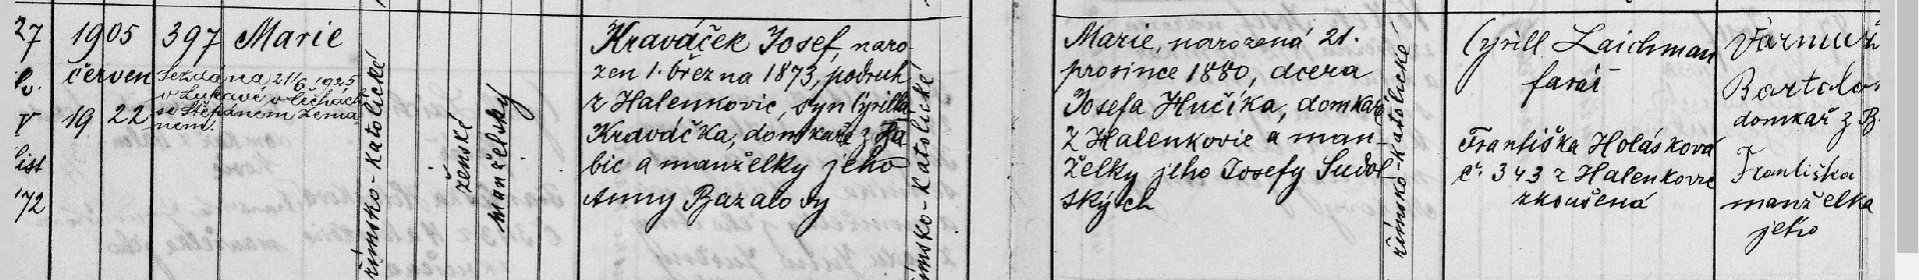 27
1905
397
Marie
červen
19
22
Sezdána 21/6 1925
v Lukavě o Lichách
se Štěpánem Zema-
nem.
list
72
římsko-katolické
ženské
manželský
Kraváček Josef, naro-
zen 1. března 1873, podruh
z Halenkovic, syn Cyrilla
Kraváčka, domkaře z Ba-
bic a manželky jeho
Anny Bazalovy
římsko-katolické
Marie, narozená 21.
prosince 1880, dcera
Josefa Hučíka, domkaře
z Halenkovic a man-
želky jeho Josefy Sudol-
ských
římsko-katolické
Cyrill Laichman
farář
Františka Holásková
č. 343 z Halenkovic
zkoušená
Bartolo
domkař z B
Františka
manželka
jeho